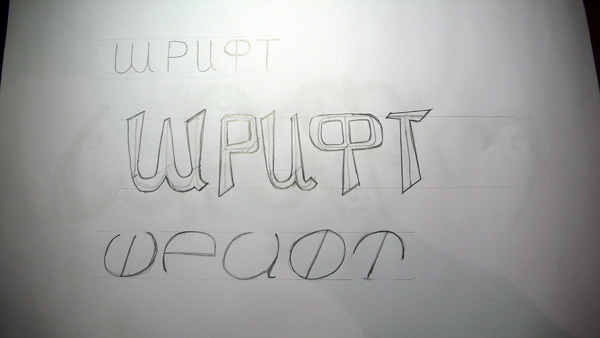 ШРИФТ
ШРИФТ
ШРИФТ